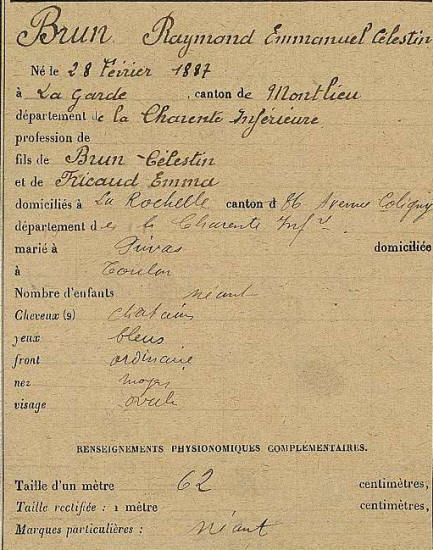 Brun Raymond Emmanuel Célestin
Né le 28 Février 1887
à La Garde canton de Montlieu
département de la Charente Inférieure
profession de
fils de Brun Célestin
et de Ricaud Emma
domiciliés à La Rochelle canton d Avenue Coligny
département de la Charente Infre
marié à domiciliée
à Toulon
Nombre d'enfants néant
Cheveux (9) chatains
yeux bleus
front ordinaire
nez moyen
visage ovale
RENSEIGNEMENTS PHYSIONOMIQUES COMPLÉMENTAIRES.
Taille d'un mètre 62 centimètres,
Taille rectifiée : 1 mètre centimètres,
Marques particulières : néant